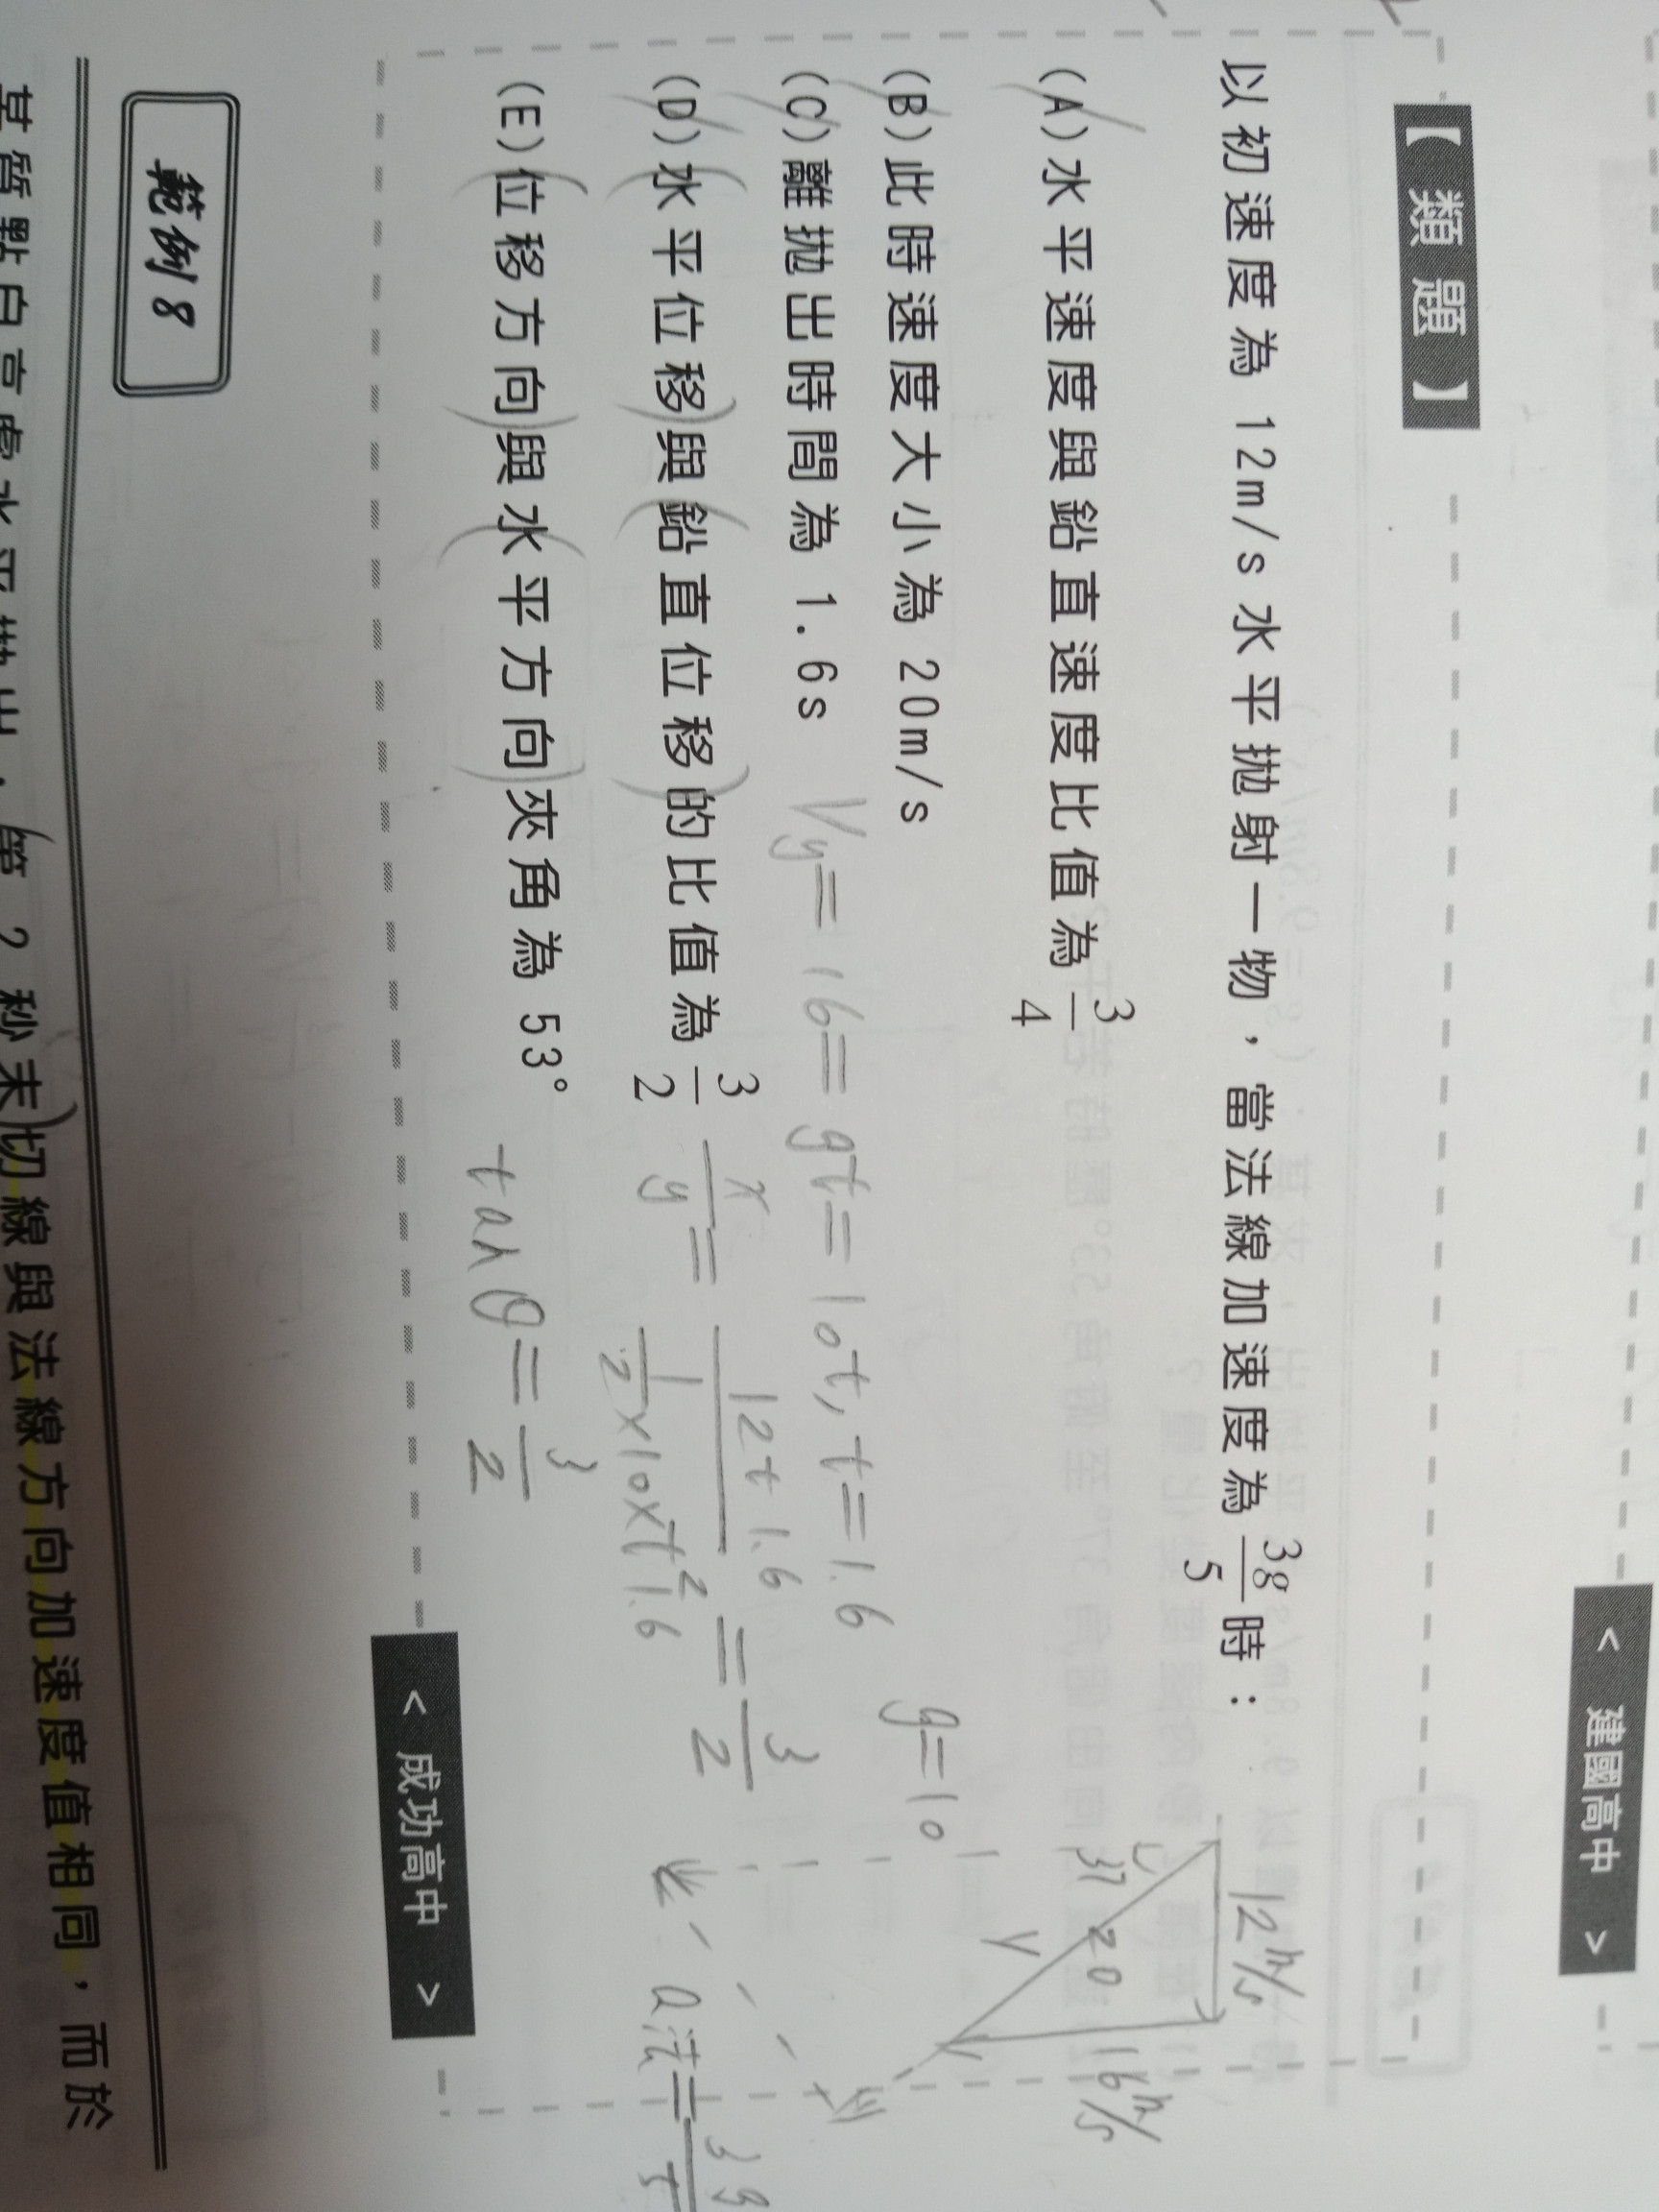 < 建國高中 >
【類題】
以初速度為 12m/s 水平拋射一物，當法線加速度為 3g/5 時：
12m/s
37
20
V
16m/s
(A)水平速度與鉛直速度比值為 3/4
(B)此時速度大小為 20m/s
g=10
(C)離拋出時間為 1.6s Vy=16=gt=10t, t=1.6
(D)水平位移與鉛直位移的比值為 3/2 x/y = 12t 1.6 / 1/2×10×t² 1.6 = 3/2
(E)位移方向與水平方向夾角為 53° tanθ=3/2
a法=3g/5
< 成功高中 >
範例 8
某質點自高處水平拋出，第 2 秒末切線與法線方向加速度值相同，而於